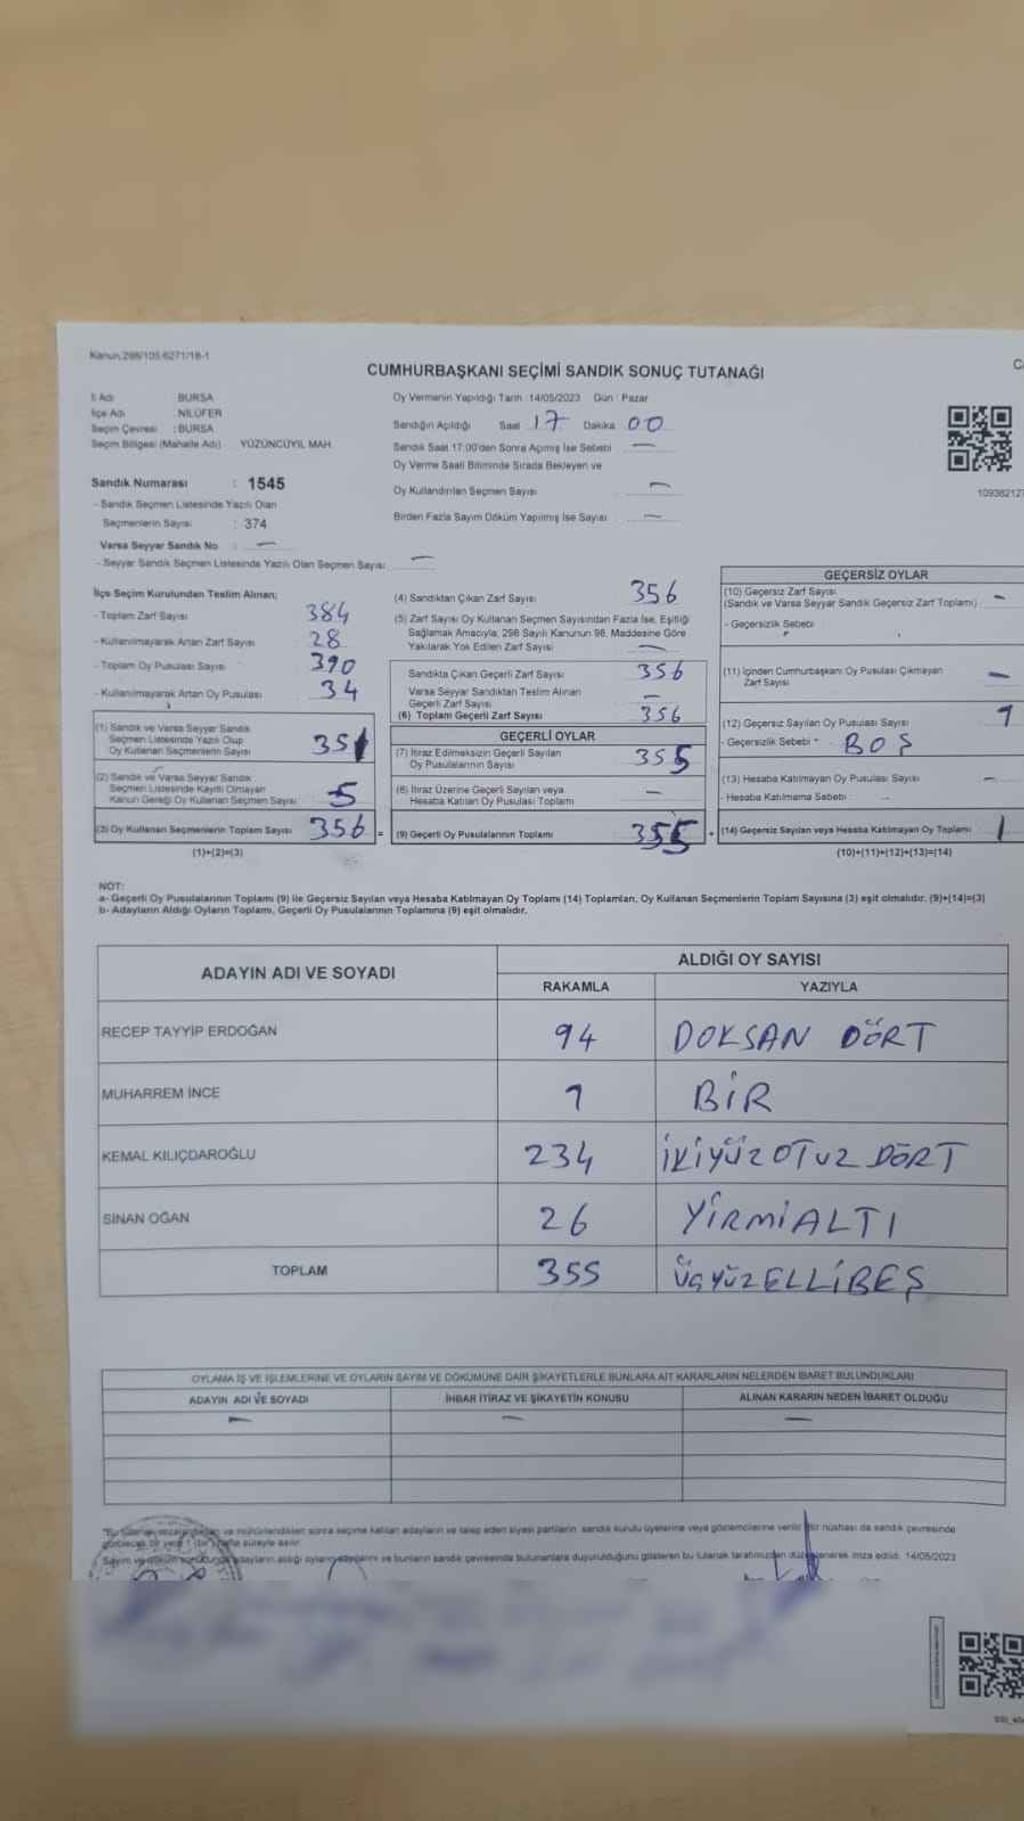 Kanun:298/105-6271/18-1
CUMHURBAŞKANI SEÇİMİ SANDIK SONUÇ TUTANAĞI
İl Adı : BURSA
İlçe Adı : NİLÜFER
Seçim Çevresi : BURSA
Seçim Bölgesi (Mahalle Adı) YÜZÜNCÜYIL MAH.
Sandık Numarası : 1545
- Sandık Seçmen Listesinde Yazılı Olan
Seçmenlerin Sayısı : 374
Varsa Seyyar Sandık No : —
- Seyyar Sandık Seçmen Listesinde Yazılı Olan Seçmen Sayısı —
Oy Vermenin Yapıldığı Tarih :14/05/2023 Gün : Pazar
Sandığın Açıldığı Saat 17 Dakika 00
Sandık Saat 17:00'den Sonra Açılmış İse Sebebi —
Oy Verme Saati Bitiminde Sırada Bekleyen ve
Oy Kullandırılan Seçmen Sayısı —
Birden Fazla Sayım Döküm Yapılmış İse Sayısı —
İlçe Seçim Kurulundan Teslim Alınan;
- Toplam Zarf Sayısı 384
- Kullanılmayarak Artan Zarf Sayısı 28
- Toplam Oy Pusulası Sayısı 390
- Kullanılmayarak Artan Oy Pusulası 34
(1) Sandık ve Varsa Seyyar Sandık
Seçmen Listesinde Yazılı Olup
Oy Kullanan Seçmenlerin Sayısı 351
(2) Sandık ve Varsa Seyyar Sandık
Seçmen Listesinde Kayıtlı Olmayan
Kanun Gereği Oy Kullanan Seçmen Sayısı 5
(3) Oy Kullanan Seçmenlerin Toplam Sayısı 356 =
(1)+(2)=(3)
(4) Sandıktan Çıkan Zarf Sayısı 356
(5) Zarf Sayısı Oy Kullanan Seçmen Sayısından Fazla İse, Eşitliği
Sağlamak Amacıyla, 298 Sayılı Kanunun 98. Maddesine Göre
Yakılarak Yok Edilen Zarf Sayısı —
Sandıkta Çıkan Geçerli Zarf Sayısı 356
Varsa Seyyar Sandıktan Teslim Alınan
Geçerli Zarf Sayısı —
(6) Toplam Geçerli Zarf Sayısı 356
GEÇERLİ OYLAR
(7) İtiraz Edilmeksizin Geçerli Sayılan
Oy Pusulalarının Sayısı 355
(8) İtiraz Üzerine Geçerli Sayılan veya
Hesaba Katılan Oy Pusulası Toplamı —
(9) Geçerli Oy Pusulalarının Toplamı 355 +
GEÇERSİZ OYLAR
(10) Geçersiz Zarf Sayısı
(Sandık ve Varsa Seyyar Sandık Geçersiz Zarf Toplamı) —
- Geçersizlik Sebebi
(11) İçinden Cumhurbaşkanı Oy Pusulası Çıkmayan
Zarf Sayısı —
(12) Geçersiz Sayılan Oy Pusulası Sayısı 1
- Geçersizlik Sebebi BOŞ
(13) Hesaba Katılmayan Oy Pusulası Sayısı —
- Hesaba Katılmama Sebebi —
(14) Geçersiz Sayılan veya Hesaba Katılmayan Oy Toplamı 1
(10)+(11)+(12)+(13)=(14)
NOT:
a- Geçerli Oy Pusulalarının Toplamı (9) ile Geçersiz Sayılan veya Hesaba Katılmayan Oy Toplamı (14) Toplamları, Oy Kullanan Seçmenlerin Toplam Sayısına (3) eşit olmalıdır. (9)+(14)=(3)
b- Adayların Aldığı Oyların Toplamı, Geçerli Oy Pusulalarının Toplamına (9) eşit olmalıdır.
ADAYIN ADI VE SOYADI ALDIĞI OY SAYISI
RAKAMLA YAZIYLA
RECEP TAYYİP ERDOĞAN 94 DOKSAN DÖRT
MUHARREM İNCE 1 BİR
KEMAL KILIÇDAROĞLU 234 İKİYÜZ OTUZ DÖRT
SİNAN OĞAN 26 YİRMİALTI
TOPLAM 355 ÜÇYÜZELLİBEŞ
OYLAMA İŞ VE İŞLEMLERİNE VE OYLARIN SAYIM VE DÖKÜMÜNE DAİR ŞİKAYETLERLE BUNLARA AİT KARARLARIN NELERDEN İBARET BULUNDUKLARI
ADAYIN ADI VE SOYADI İHBAR İTİRAZ VE ŞİKAYETİN KONUSU ALINAN KARARIN NEDEN İBARET OLDUĞU
— — —
ve mühürlendikten sonra seçime katılan adayların ve talep eden siyasi partilerin sandık kurulu üyelerine veya gözlemcilerine verilir. Bir nüshası da sandık çevresinde
süreyle asılır.
adayların aldığı oyların ve bunların sandık çevresinde bulunanlara duyurulduğunu gösteren bu tutanak tarafımızdan düzenlenerek imza edildi. 14/05/2023